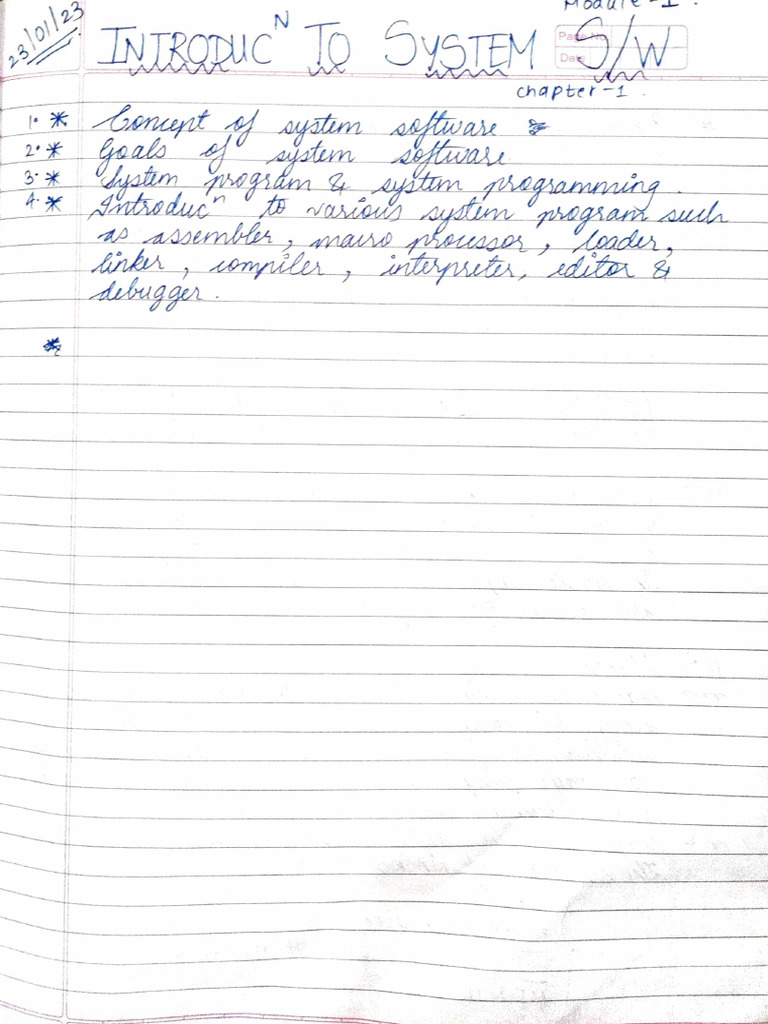 Module-1.
23/01/23
INTRODUCᴺ TO SYSTEM S/W
Page No.
Date
chapter-1.
1. * Concept of system software
2. * Goals of system software
3. * System program & system programming.
4. * Introducⁿ to various system program such
as assembler, macro processor, loader,
linker, compiler, interpreter, editor &
debugger.
*